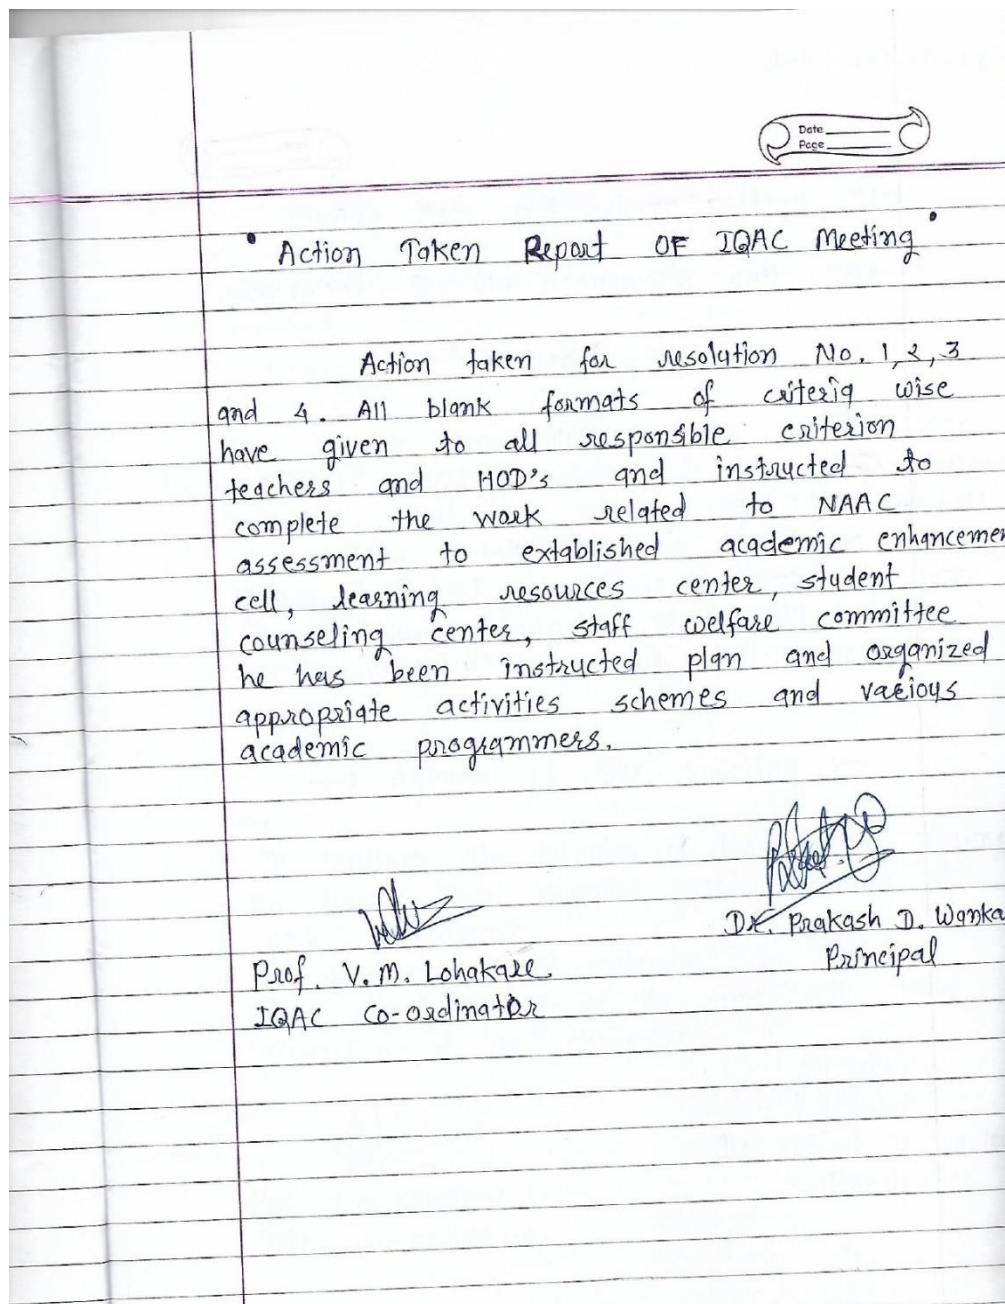 Date
Page
Action Taken Report OF IQAC Meeting
Action taken for resolution No. 1, 2, 3
and 4. All blank formats of criteria wise
have given to all responsible criterion
teachers and HOD's and instructed to
complete the work related to NAAC
assessment to extablished academic enhancemen
cell, learning resources center, student
counseling center, staff welfare committee
he has been instructed plan and organized
appropriate activities schemes and various
academic programmers.
Dr. Prakash D. Wanka
Principal
Prof. V. M. Lohakare
IQAC Co-ordinator